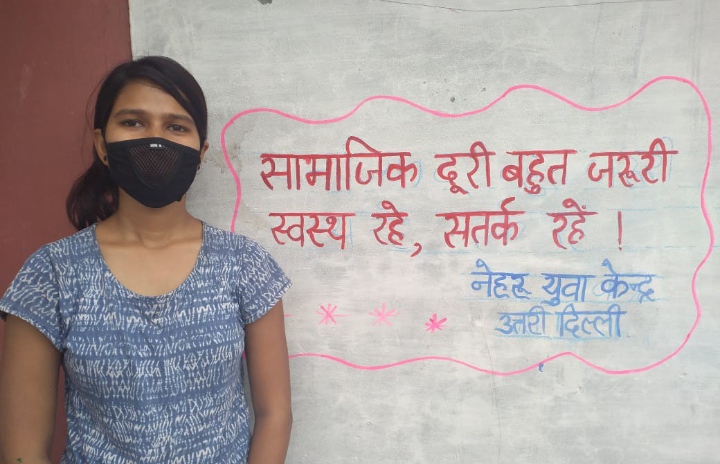 सामाजिक दूरी बहुत जरूरी
स्वस्थ रहे, सतर्क रहें !
नेहरू युवा केन्द्र
उत्तरी दिल्ली